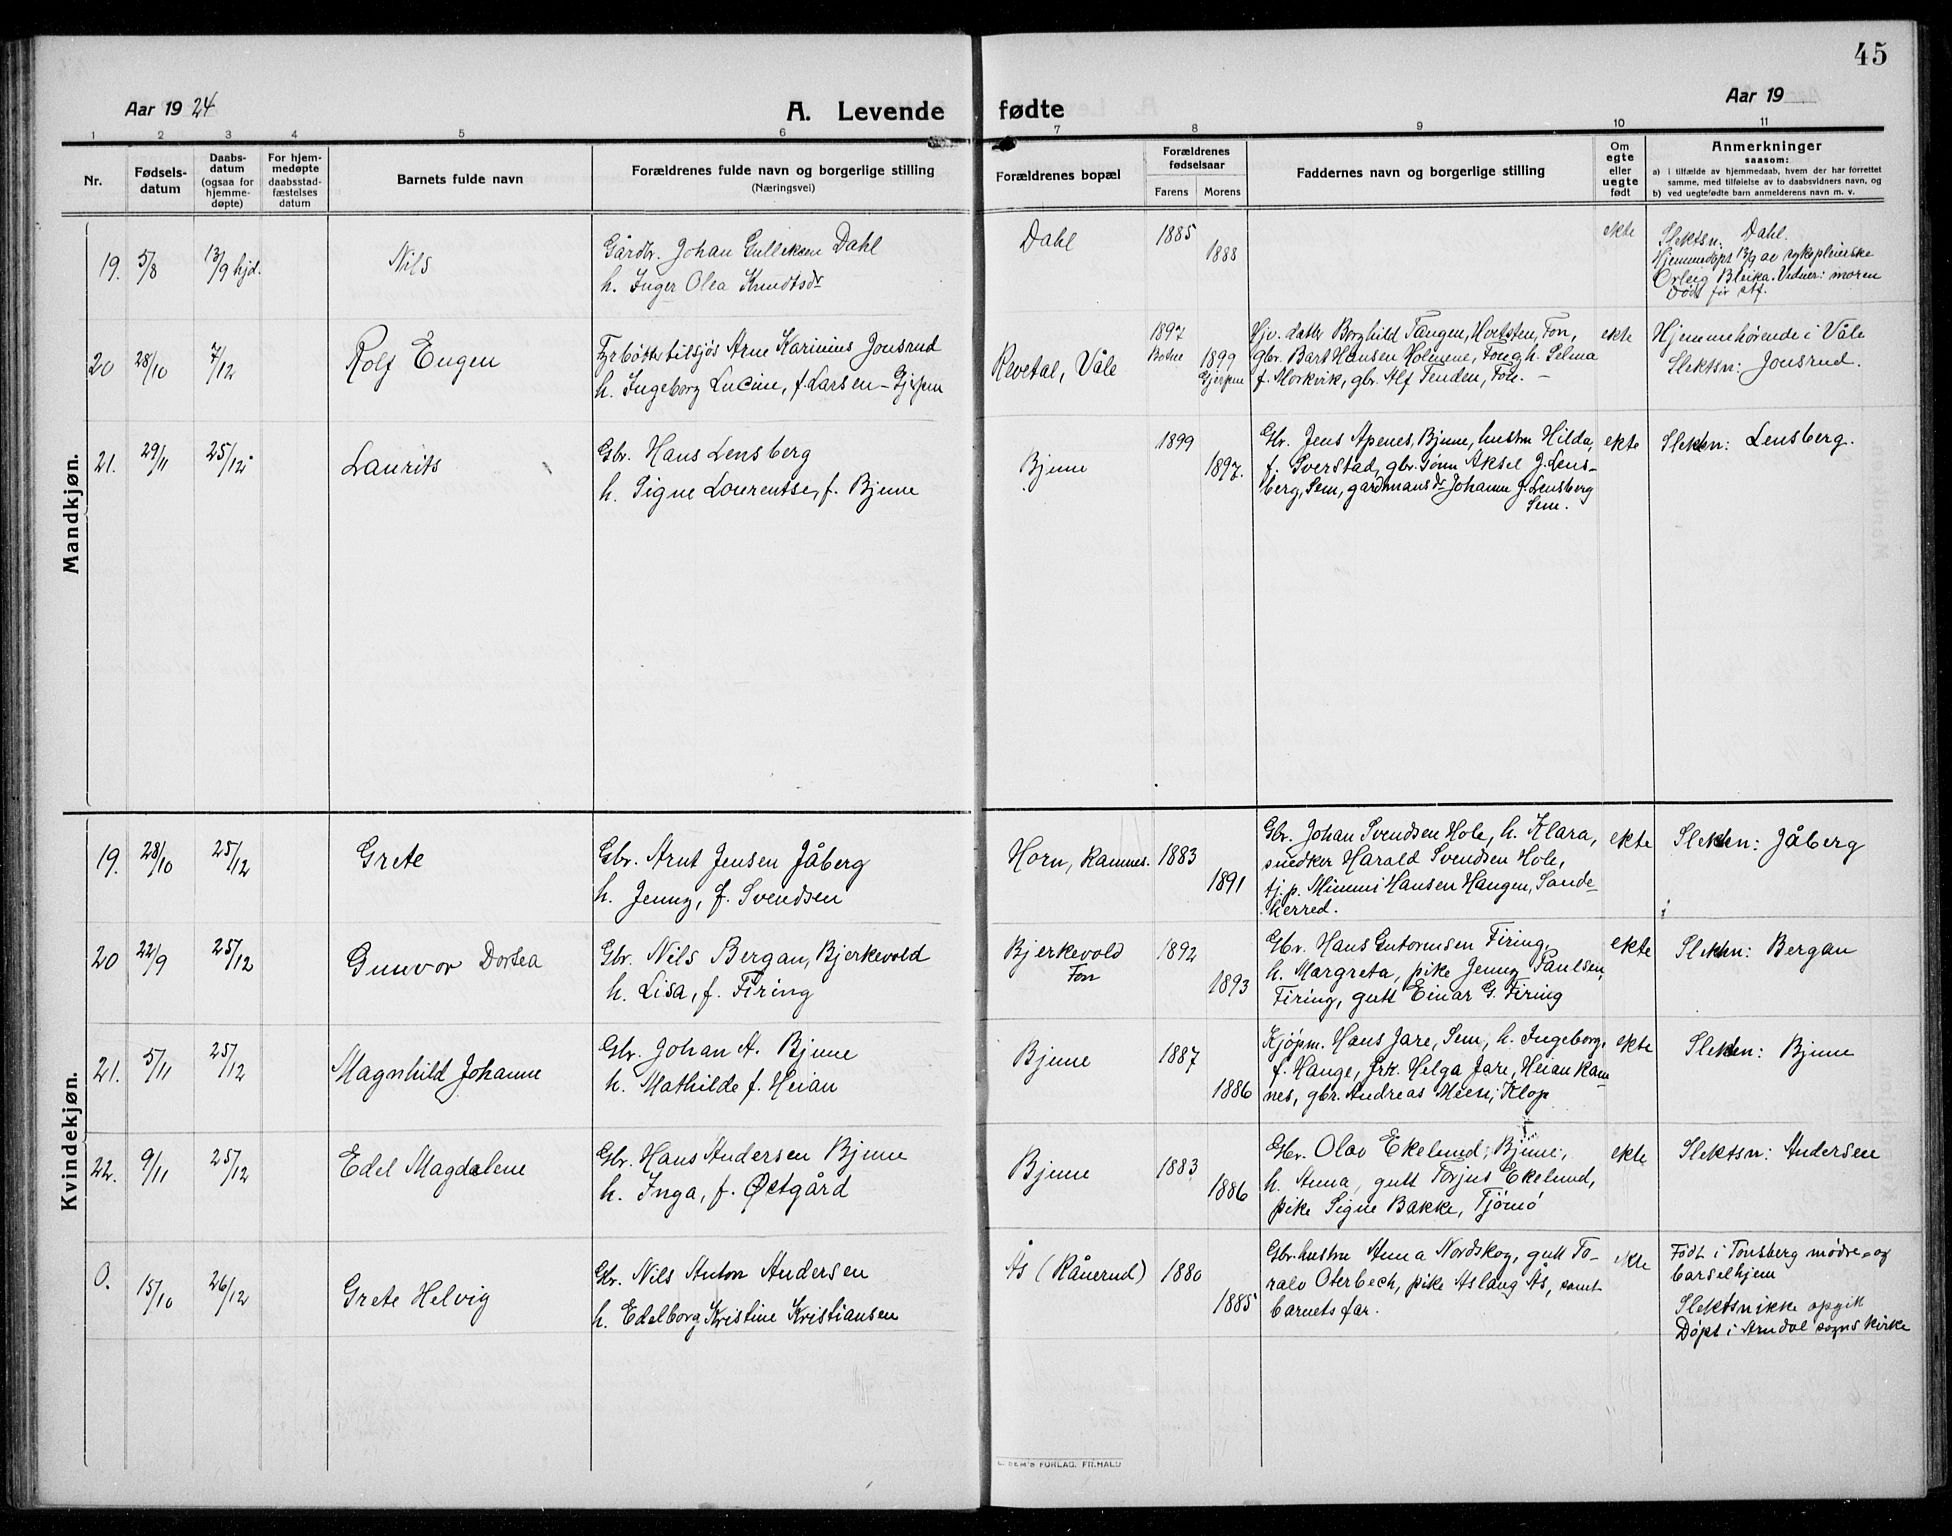 45
Aar 1924
A. Levende fødte
Aar 19
1 2 3 4 5 6 7 8 9 10 11
Nr.
Fødsels-
datum
Daabs-
datum
(ogsaa for
hjemme-
døpte)
For hjem-
medøpte
daabsstad-
fæstelses
datum
Barnets fulde navn
Forældrenes fulde navn og borgerlige stilling
(Næringsvei)
Forældrenes bopæl
Forældrenes
fødselsaar
Farens Morens
Faddernes navn og borgerlige stilling
Om
egte
eller
uegte
født
Anmerkninger
saasom:
a) i tilfælde av hjemmedaab, hvem der har forrettet
samme, med tilføielse av to daabsvidners navn, og
b) ved uegtefødte barn anmelderens navn m. v.
Mandkjøn.
19. 5/8 13/9 hjd. Nils
Gårdbr. Johan Gulliksen Dahl
h. Inger Olea Knudtsdr
Dahl 1885 1888 ekte
Slektsn. Dahl.
Hjemmedøpt 13/9 av sykepleierske
Bleika. Vidner: moren
Født før stf.
20 28/10 7/12 Rolf Eugen
Fyrbøter tilsjøs Arne Karinius Jonsrud
h. Ingeborg Lucine, f. Larsen - Gjerpen
Revetal, Våle 1897 Botne 1899 Gjerpen
Hjv. datter Borghild Tangen, Hvetsten, Fon,
gbr. Bart Hansen Holmene, Fon og h. Selma
f. Morkvik, gbr. Alf Tenden, Fon. -
ekte
Hjemmehørende i Våle
Slektsn: Jonsrud.
21. 29/11 25/12. Laurits
Gbr. Hans Lensberg
h. Signe Lourentse, f. Bjune
Bjune 1899 1897.
Gbr. Jens Apenes, Bjune, hustru Hilda,
f. Sverstad, gbr. sønn Aksel J. Lens-
berg, Sem, gardmansdr Johanne J. Lensberg
Sem.
ekte
Slektsn: Lensberg.
Kvindekjøn.
19. 28/10 25/12 Grete
Gbr. Arnt Jensen Jåberg
h. Jenny, f. Svendsen
Horn, Ramnes. 1883 1891
Gbr. Johan Svendsen Hole, h. Klara,
snedker Harald Svendsen Hole,
tj.p. Mimmi Hansen Haugen, Sande-
herred.
ekte
Slektsn: Jåberg
20 22/9 25/12 Gunvor Dortea
Gbr. Nils Bergan, Bjerkevold
h. Lisa, f. Firing
Bjerkevold
Fon
1892 1893
Gbr. Hans Gutormsen Firing,
h. Margreta, pike Jenny Paulsen,
Firing, gutt Einar G. Firing
ekte
Slektsn: Bergan
21. 5/11 25/12 Magnhild Johanne
Gbr. Johan A. Bjune
h. Mathilde f. Heian
Bjune 1887 1886
Kjøpm. Hans Jare, Sem, h. Ingeborg,
f. Hauge, frk. Helga Jare, Heian Ram-
nes, gbr. Andreas Meen, Klop
ekte
Slektsn: Bjune
22. 9/11 25/12 Edel Magdalene
Gbr. Hans Andersen Bjune
h. Inga, f. Østgård
Bjune 1883 1886
Gbr. Olav Ekelund, Bjune,
h. Anna, gutt Torjus Ekelund,
pike Signe Bakke, Tjømø
ekte
Slektsn: Andersen
0. 15/10 26/12 Grete Helvig
Gbr. Nils Anton Andersen
h. Edelborg Kristine Kristiansen
Ås (Rånerud) 1880 1885
Gbr. hustru Anna Nordskog, gutt To-
ralv Oterbech, pike Aslaug Ås, samt
barnets far.
ekte
Født i Tønsberg mødre- og
barselhjem
Slektsn ikke opgitt
Døpt i Arndal sogns kirke
E. SEM'S FORLAG. FR.HALD